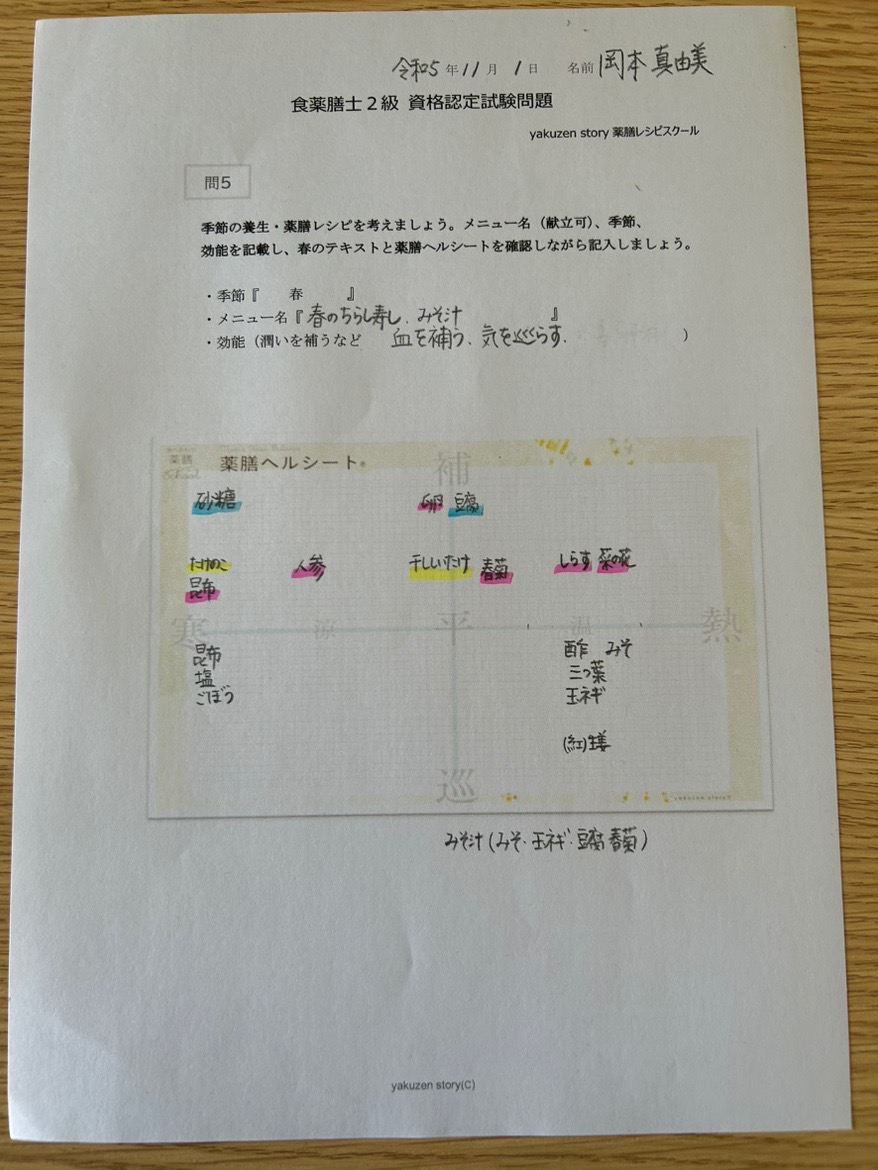 令和5年11月1日 名前 岡本真由美
食薬膳士2級 資格認定試験問題
yakuzen story 薬膳レシピスクール
問5
季節の養生・薬膳レシピを考えましょう。メニュー名（献立可）、季節、
効能を記載し、春のテキストと薬膳ヘルシートを確認しながら記入しましょう。
・季節『 春 』
・メニュー名『春のちらし寿し、みそ汁 』
・効能（潤いを補うなど 血を補う、気を巡らす. ）
薬膳 School
薬膳ヘルシート®
補
砂糖 卵 豆腐
たけのこ 人参 干しいたけ 春菊 しらす 菜の花
昆布
寒 涼 平 温 熱
昆布 酢 みそ
塩 三つ葉
ごぼう 玉ネギ
(紅)生姜
巡
yakuzen story©
みそ汁(みそ・玉ネギ・豆腐 春菊)
yakuzen story(C)